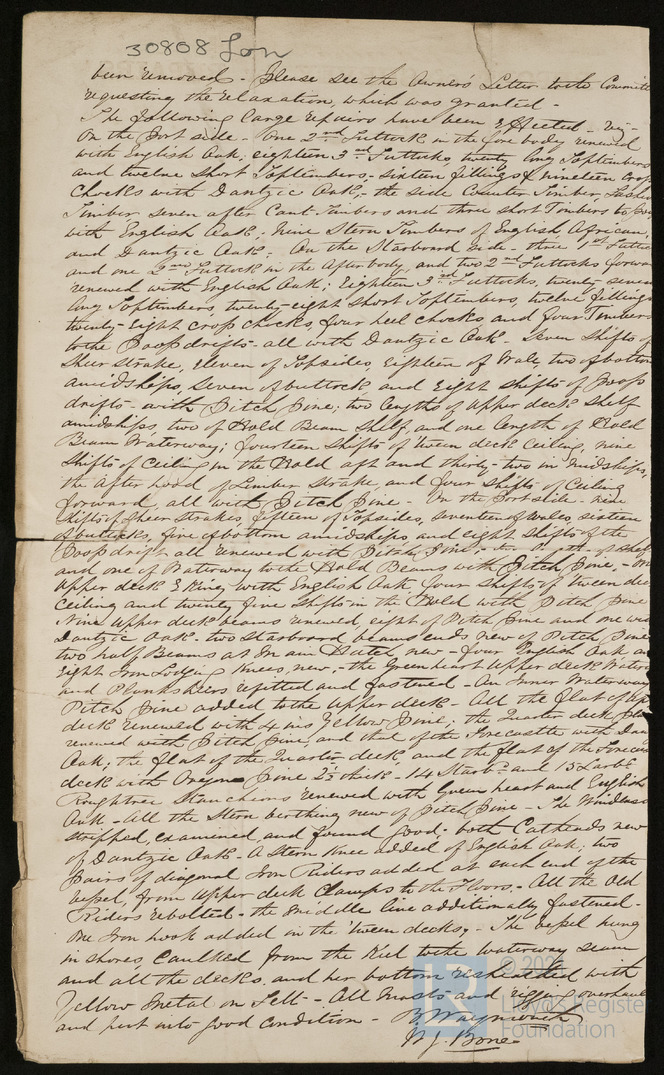 30808 Lon
been removed - Please see the Owner's Letter to the Committe
requesting the relaxation, which was granted -
The following large repairs have been effected - viz -
On the Port side - One 2nd Futtock in the fore body renewed
with English Oak; eighteen 3rd Futtocks, twenty long Toptimbers
and twelve short Toptimbers, - sixteen fillings & nineteen crop
Chocks with Dantzic Oak, - the side Counter Timber, Fashion
Timber, seven after Cant Timbers and three short Timbers to
with English Oak; Nine Stern Timbers of English African,
and Dantzic Oak; On the Starboard side - three 1st Futtoc
and one 2nd Futtock in the After body, and two 2nd Futtocks forwar
renewed with English Oak; Eighteen 3rd Futtocks, twenty-seven
long Toptimbers, twenty-eight short Toptimbers, twelve fillings
twenty-eight crop chocks, four heel chocks and four Timbers
to the Poop drifts - all with Dantzic Oak - Seven Shifts of
Sheer strake, eleven of Topsides, eighteen of Wale, two of bottom
amidships, seven of buttock and eight shifts of Poop
drifts - with Pitch Pine; two lengths of upper deck shelf
amidships, two of Hold Beam Shelf, and one length of Hold
Beam Waterway; fourteen shifts of 'tween deck Ceiling, nine
shifts of Ceiling in the Hold aft and thirty-two in midships,
the After hood of Limber strake, and four shifts of Ceiling
forward, all with Pitch Pine - On the Port side - nine
shifts of sheer strakes fifteen of Topsides, seventeen of Wales, sixteen
of buttocks, five of bottom amidships and eight shifts of the
Poop drift all renewed with Pitch Pine; - two length of shelf
and one of Waterway to the Hold Beams with Pitch Pine, -
Upper deck & King with English Oak four shifts of tween dec
Ceiling and twenty five shifts in the Hold with Pitch Pine
Nine Upper deck beams renewed, eight of Pitch Pine and one with
Dantzic Oak - two starboard beams ends new of Pitch Pine
two half Beams at Main Hatch new - four English Oak an
Eight Iron Lodging Knees, new, - the Greenheart Upper deck Water
and Planksheers refitted and fastened - An Inner Waterway
Pitch Pine added to the Upper deck - All the flat of Upp
deck renewed with 4 ins Yellow Pine; the Quarter deck
renewed with Pitch Pine, and that of the Forecastle with Dan
Oak; the flat of the Quarter deck, and the flat of the Forecas
deck with Oregon Pine 2½ thick - 14 Starbd and 15 Larbd
Roughtree Stancheons renewed with Green heart and English
Oak - All the Stern berthing new of Pitch Pine - The Windlass
stripped, examined and found good - both Catheads new
of Dantzic Oak - A Stern Knee added of English Oak; two
Pairs of diagonal Iron Riders added at each end of the
vessel, from Upper deck Clamps to the Floors. - All the Old
Riders rebolted - the middle line additionally fastened -
One Iron hook added in the 'tween decks, - The vessel hung
in shores Caulked from the Keel to the Waterway seam
and all the decks, and her bottom resheathed with
Yellow Metal on Felt - All Masts and rigging overhauled
and put into good condition - R. Waymouth
W. J. Bone
LR
© 202
Lloyd's Registe
Foundation